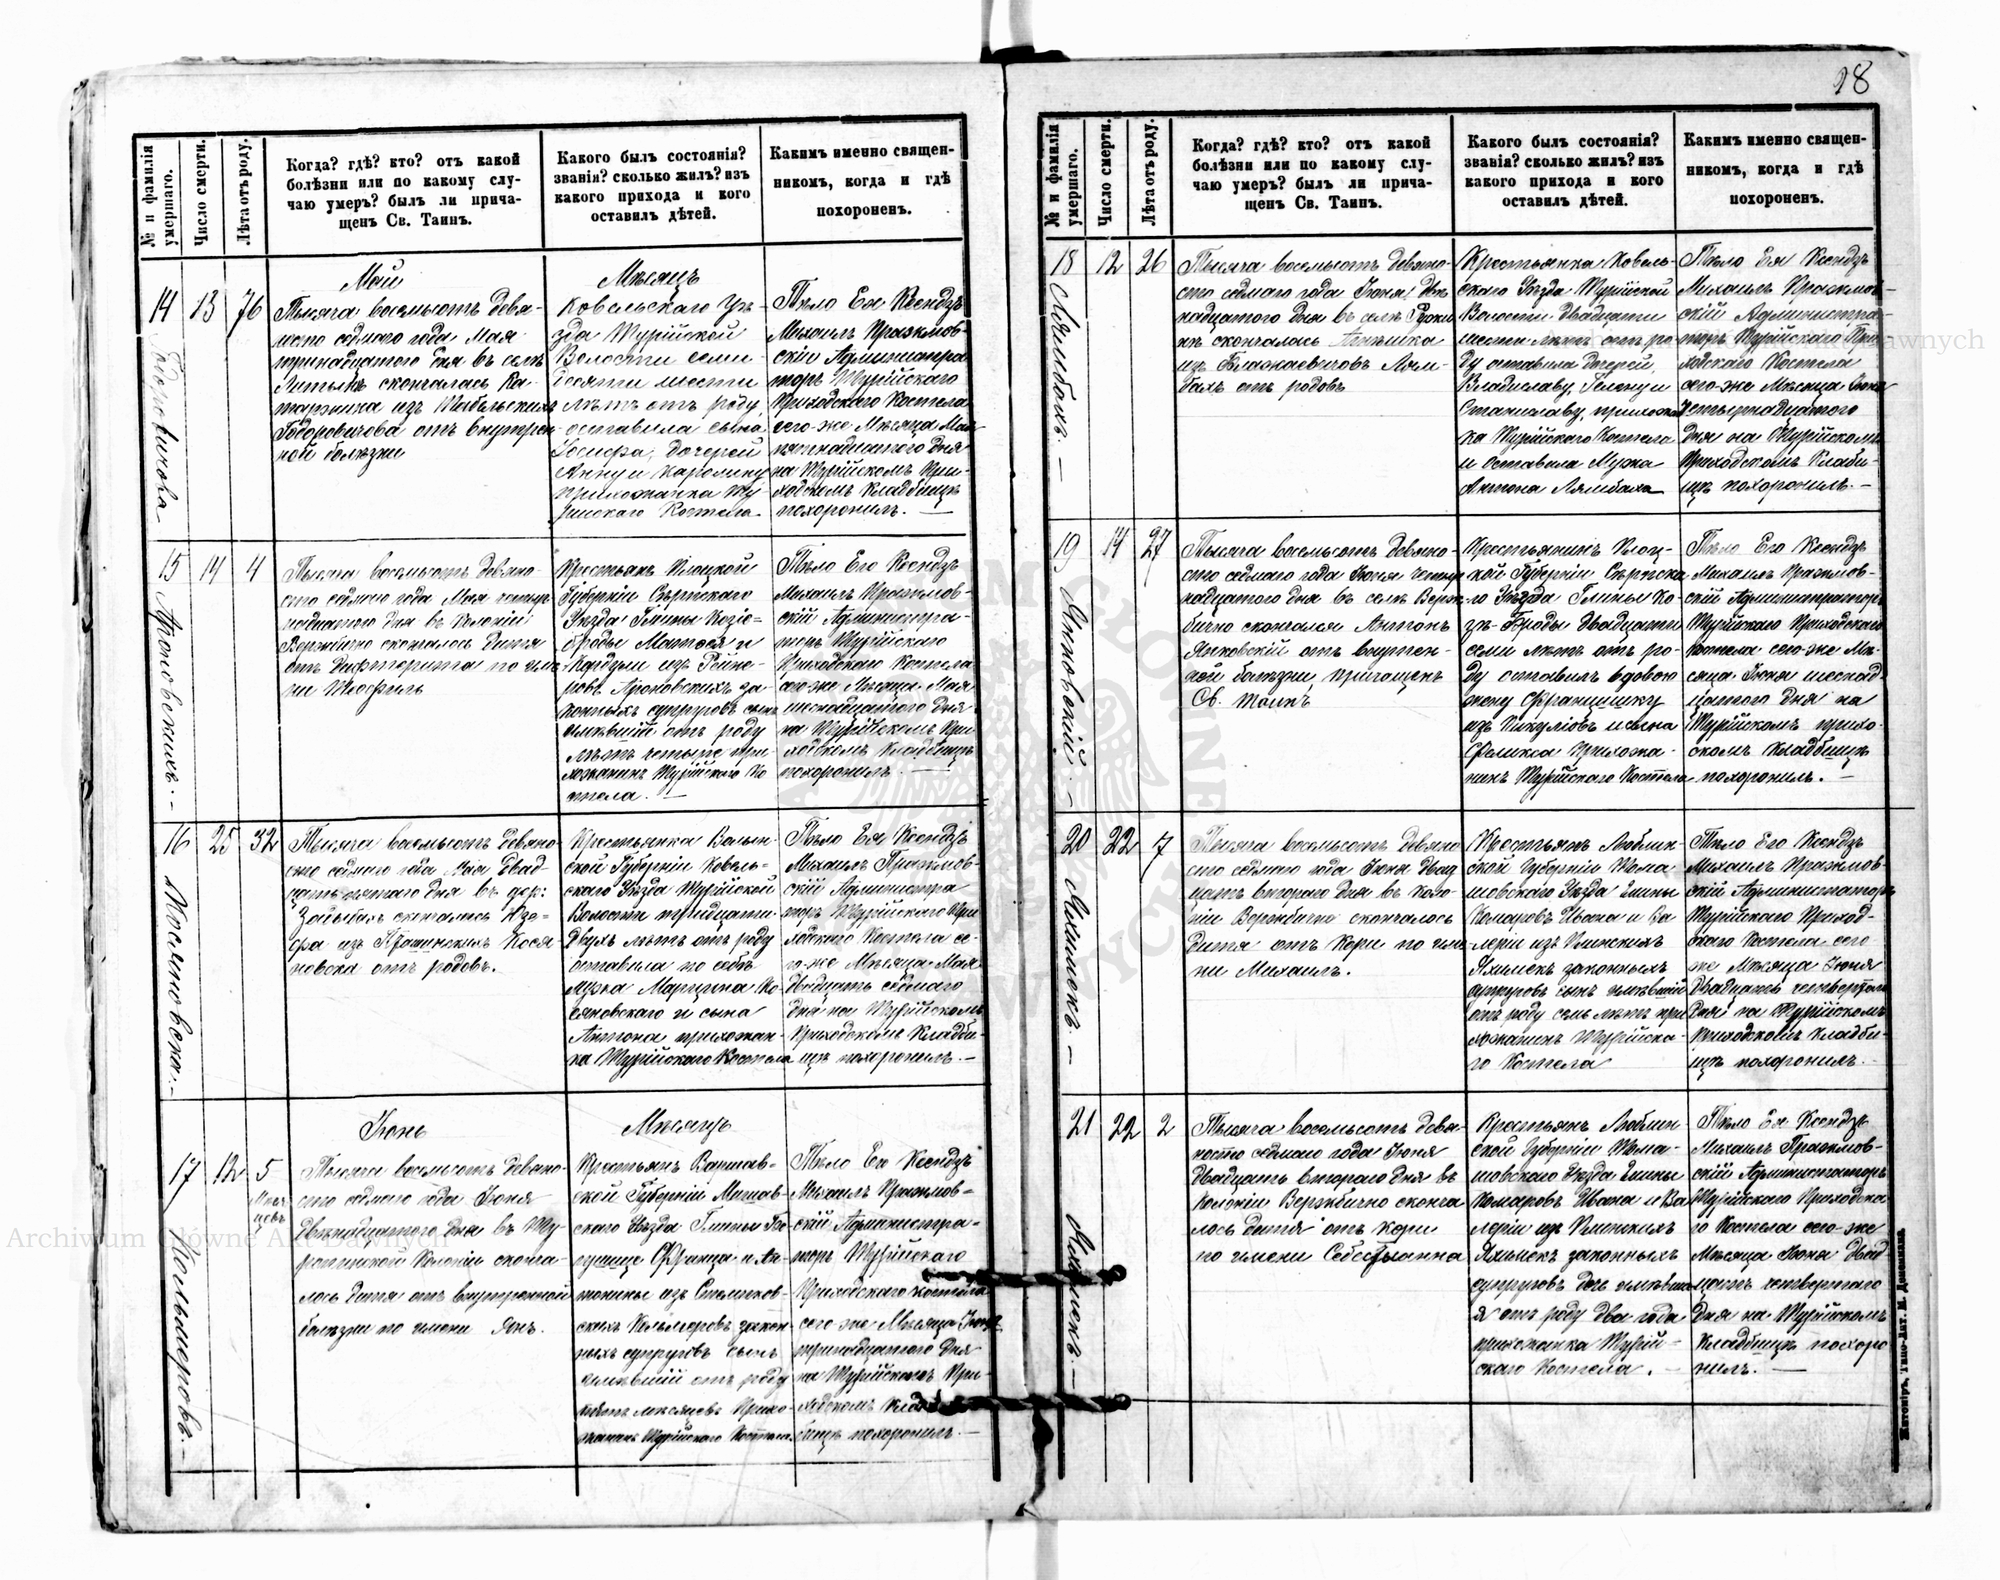 28
№ и фамилія умершаго.
Число смерти.
Лѣта отъ роду.
Когда? гдѣ? кто? отъ какой
болѣзни или по какому слу-
чаю умеръ? былъ ли прича-
щенъ Св. Таинъ.
Какого былъ состоянія?
званія? сколько жилъ? изъ
какого прихода и кого
оставилъ дѣтей.
Какимъ именно священ-
никомъ, когда и гдѣ
похороненъ.
Май
Мѣсяцъ
14
13
76
Тысяча восемьсотъ девя-
носто седмаго года Мая
тринадцатого дня въ селѣ
скончалась Ка-
таржина изъ
отъ внутрен-
ной болѣзни
Ковельскаго Уѣ-
зда Турійской
Волости семи-
десяти шести
лѣтъ отъ роду,
оставила сына
Іосифа, дочерей
Анну и Каролину
прихожанка Ту-
рійскаго Костела.
Тѣло Ея Ксендзъ
Михаилъ Пражмов-
скій Администра
торъ Турійскаго
Приходскаго Костела
сего-же Мѣсяца Мая
пятнадцатого дня
на Турійскомъ При-
ходскомъ Кладбищѣ
похоронилъ. —
15
14
4
Ароновскихъ. —
Тысяча восемьсотъ девяно-
сто седмаго года Мая четыр
надцатого дня въ Колоніи
Вержбично скончалось дитя
отъ Дифтерита по име-
ни Теофиль
Крестьянъ Плоцкой
Губерніи Сѣрпскаго
Уѣзда Гмины Козіо-
броды Матвея и
изъ Рейне-
ровъ Ароновскихъ за-
конныхъ супруговъ сынъ
имѣвшій отъ роду
лѣтъ четыре при-
хожанинъ Турійскаго Ко
стела. —
Тѣло Его Ксендзъ
Михаилъ Пражмов-
скій Администра-
торъ Турійскаго
Приходскаго Костела
сего-же Мѣсяца Мая
шеснадцатого дня
на Турійскомъ При
ходскомъ Кладбищѣ
похоронилъ. —
16
25
32
Косяновска. —
Тысяча восемьсотъ девяно-
сто седмаго года Мая двад-
цать пятаго дня въ дер:
Задыбахъ скончалась Юзе-
фа изъ Кося-
новска отъ родовъ.
Крестьянка Волын-
ской Губерніи Ковель-
скаго Уѣзда Турійской
Волости тридцати
двухъ лѣтъ отъ роду
оставила по себѣ
мужа Марцина Ко-
сяновскаго и сына
Антона прихожан-
ка Турійскаго Костела
Тѣло Ея Ксендзъ
Михаилъ Пражмов-
скій Администра
торъ Турійскаго При
ходскаго Костела се-
го-же Мѣсяца Мая
двадцать седмаго
дня на Турійскомъ
Приходскомъ Кладби-
щѣ похоронилъ. —
Іюнь
Мѣсяцъ
17
12
5
Мѣся
цевъ
Кольмеровъ. —
Тысяча восемьсотъ девяно-
сто седмаго года Іюня
двѣнадцатого дня въ
Колоніи сконча-
лось дитя отъ внутренной
болѣзни по имени Янъ.
Крестьянъ Варшав-
ской Губерніи
скаго Уѣзда Гмины
Франца и Ан-
тонины изъ
скихъ Кольмеровъ закон-
ныхъ супруговъ сынъ
имѣвшій отъ роду
пять мѣсяцевъ Прихо-
жанинъ Турійскаго Костела
Тѣло Его Ксендзъ
Михаилъ Пражмов-
скій Администра-
торъ Турійскаго
Приходскаго Костела
сего-же Мѣсяца Іюня
тринадцатого дня
на Турійскомъ При-
ходскомъ Клад-
бищѣ похоронилъ. —
№ и фамилія умершаго.
Число смерти.
Лѣта отъ роду.
Когда? гдѣ? кто? отъ какой
болѣзни или по какому слу-
чаю умеръ? былъ ли прича-
щенъ Св. Таинъ.
Какого былъ состоянія?
званія? сколько жилъ? изъ
какого прихода и кого
оставилъ дѣтей.
Какимъ именно священ-
никомъ, когда и гдѣ
похороненъ.
18
12
26
Лямбахъ. —
Тысяча восемьсотъ девяно-
сто седмаго года Іюня двѣ
надцатого дня въ селѣ
скончалась
изъ Блажаевичовъ Лям-
бахъ отъ родовъ
Крестьянка Ковель-
скаго Уѣзда Турійской
Волости двадцати
шести лѣтъ отъ ро-
ду оставила дочерей,
Владиславу, Гелену и
Станиславу, прихожан
ка Турійскаго Костела
и оставила Мужа
Антона Лямбаха
Тѣло Ея Ксендзъ
Михаилъ Пражмов-
скій Администра-
торъ Турійскаго При-
ходскаго Костела
сего-же Мѣсяца Іюня
четырнадцатого
дня на Турійскомъ
Приходскомъ Кладби-
щѣ похоронилъ. —
19
14
27
Янковскій. —
Тысяча восемьсотъ девяно-
сто седмаго года Іюня четыр
надцатого дня въ селѣ Верж-
бично скончался Антонъ
Янковскій отъ внутрен-
ной болѣзни, пріощенъ
Св. Таинъ
Крестьянинъ Плоц-
кой Губерніи Сѣрпска
го Уѣзда Гмины Ко-
зѣ-Броды двадцати
семи лѣтъ отъ ро-
ду оставилъ вдовою
жену Францишку
изъ и сына
Феликса прихожа-
нинъ Турійскаго Костела
Тѣло Его Ксендзъ
Михаилъ Пражмов-
скій Администраторъ
Турійскаго Приходскаго
Костела сего-же Мѣ-
сяца Іюня шеснад-
цатого дня на
Турійскомъ прихо-
скомъ Кладбищѣ
похоронилъ. —
20
22
7
Яхимекъ. —
Тысяча восемьсотъ девяно
сто седмаго года Іюня двад
цать втораго дня въ Коло-
ніи Вержбично скончалось
дитя отъ Кори по име-
ни Михаилъ.
Крестьянъ Люблин-
ской Губерніи Тома
шовскаго Уѣзда Гмины
Комаровъ Ивана и Ва
леріи изъ
Яхимекъ законныхъ
супруговъ сынъ имѣвшій
отъ роду семь лѣтъ при
хожанинъ Турійска-
го Костела
Тѣло Его Ксендзъ
Михаилъ Пражмов-
скій Администраторъ
Турійскаго Приход-
скаго Костела сего
же Мѣсяца Іюня
двадцать четвертаго
дня на Турійскомъ
Приходскомъ Кладби-
щѣ похоронилъ. —
21
22
2
Яхимекъ. —
Тысяча восемьсотъ девя-
носто седмаго года Іюня
двадцать втораго дня въ
Колоніи Вержбично сконча
лось дитя отъ кори
по имени Себестыанна
Крестьянъ Люблин-
ской Губерніи Тома-
шовскаго Уѣзда Гмины
Комаровъ Ивана и Ва
леріи изъ
Яхимекъ законныхъ
супруговъ дочь имѣвша
я отъ роду два года
прихожанка Турій-
скаго Костела. —
Тѣло Ея Ксендзъ
Михаилъ Пражмов-
скій Администраторъ
Турійскаго Приходска
го Костела сего-же
Мѣсяца Іюня двад
цать четвертаго
дня на Турійскомъ
Кладбищѣ похоро
нилъ. —
Житоміръ, Типо-Лит. М. Дененмана.
Archiwum Główne Akt Dawnych